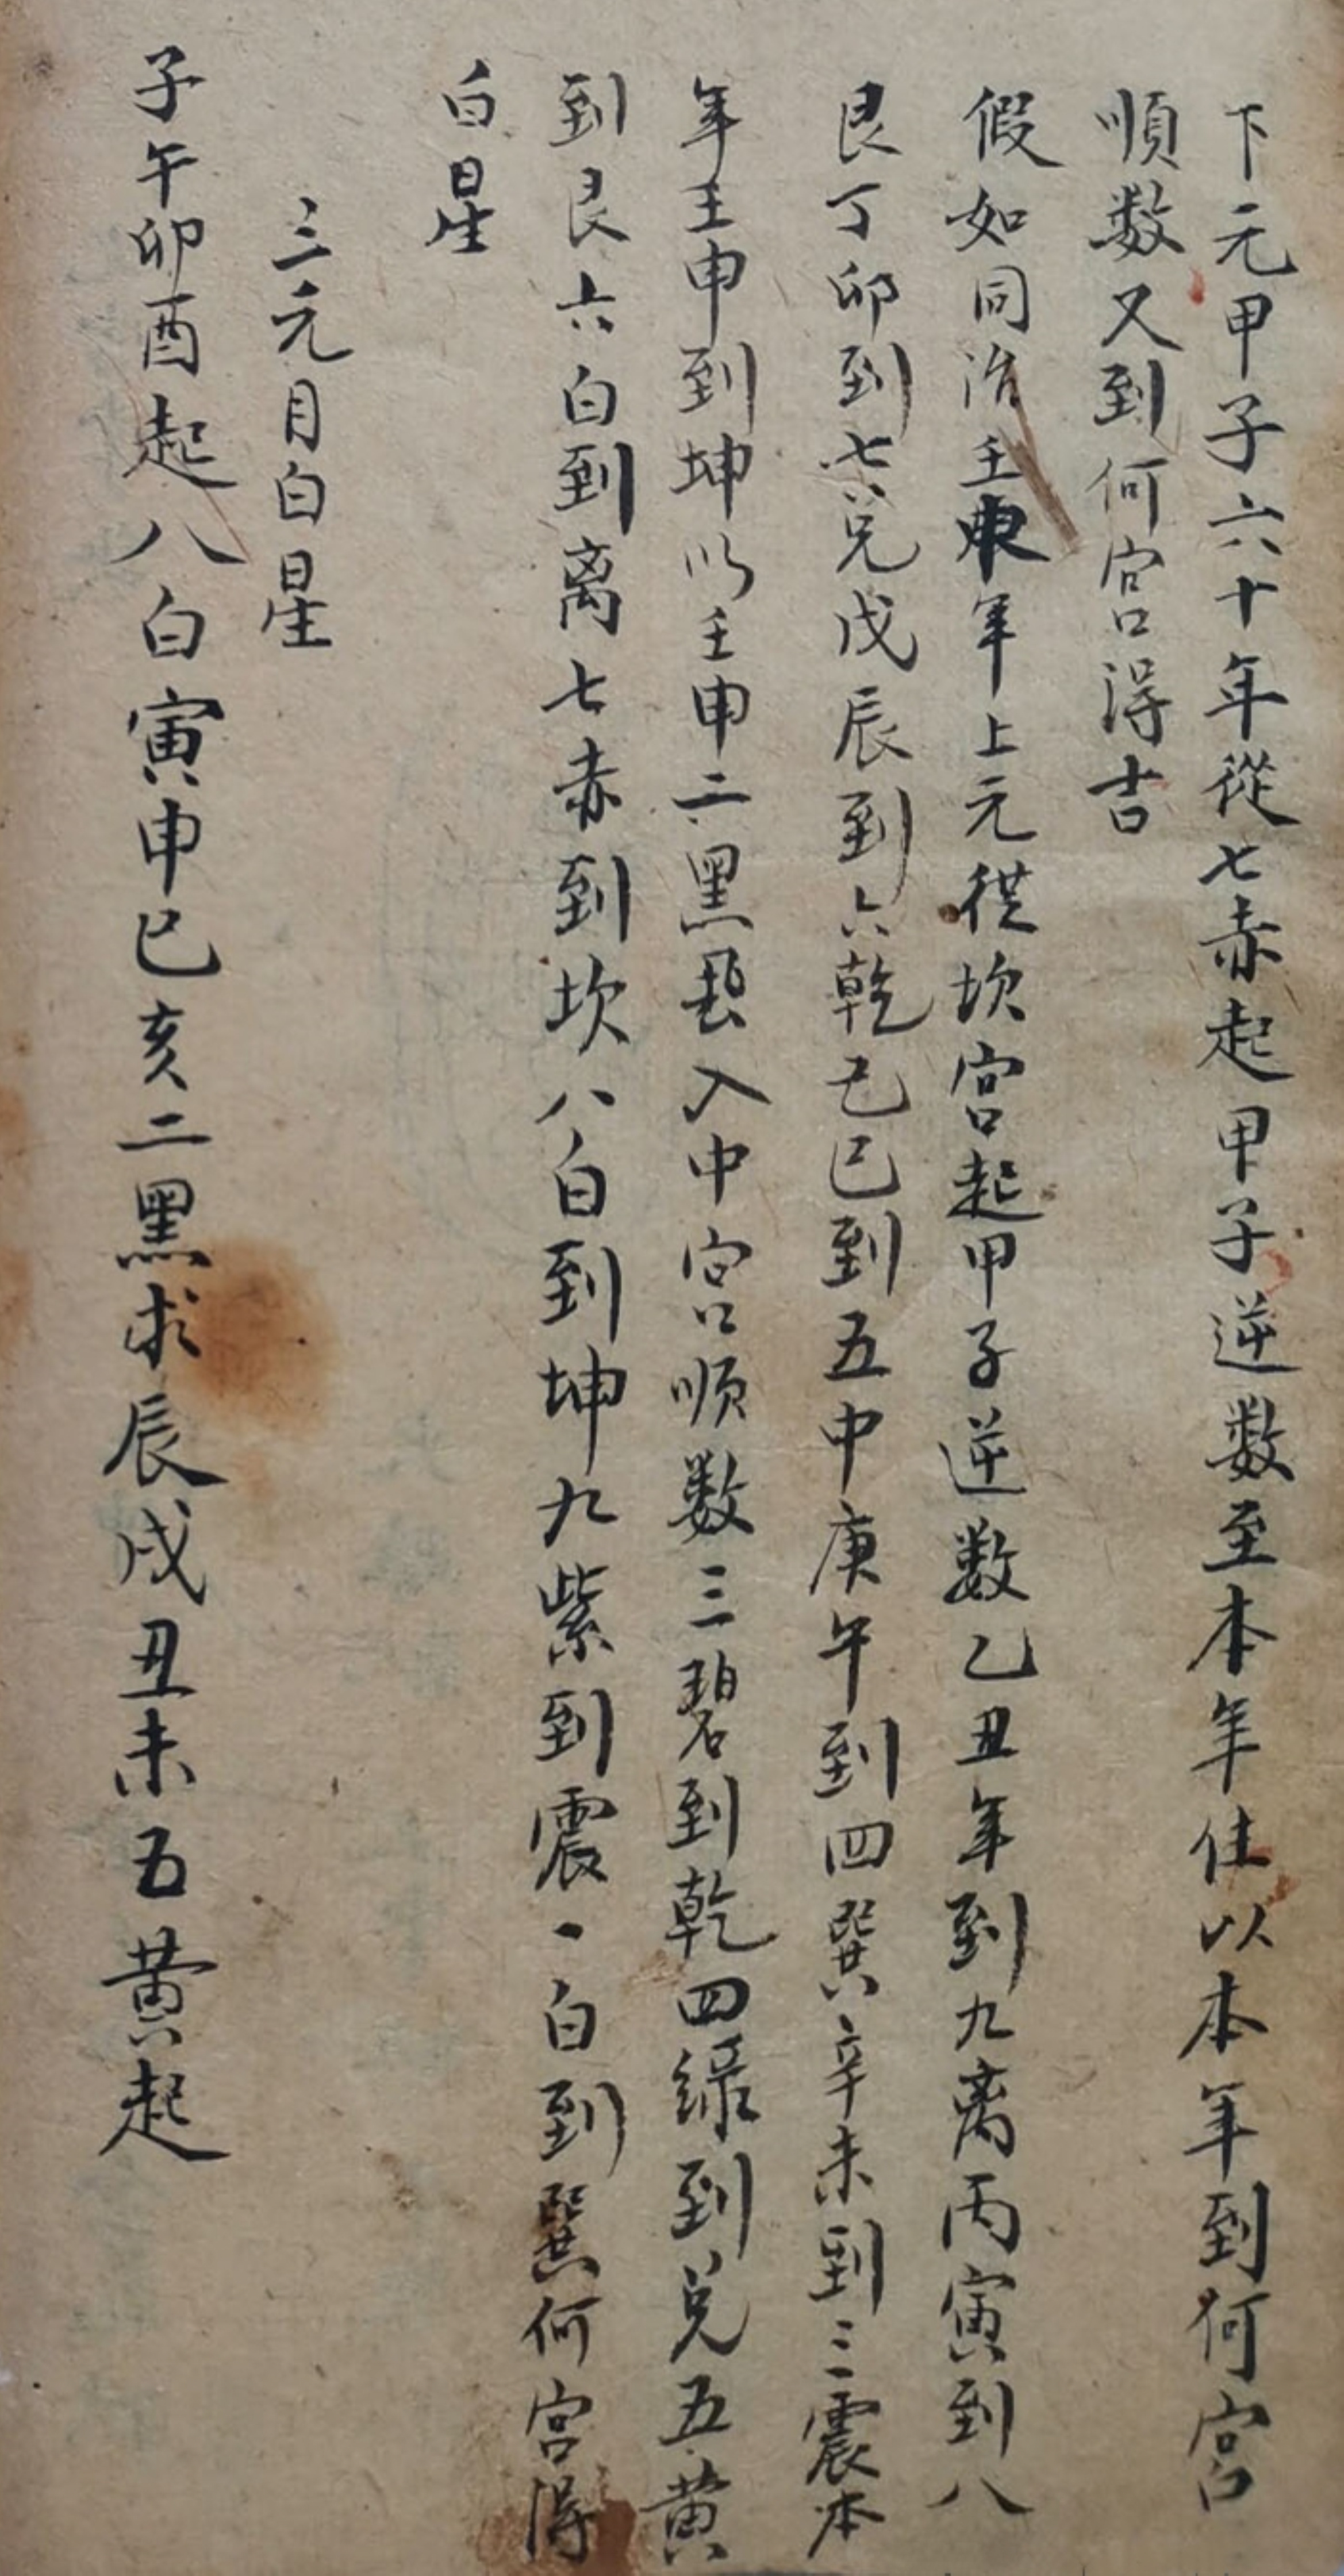 下元甲子六十年從七赤起甲子逆数至本年住以本年到何宫
順数又到何宫得吉
假如同治壬申年上元從坎宫起甲子逆数乙丑年到九离丙寅到八
艮丁卯到七兑戊辰到六乾己巳到五中庚午到四巽辛未到三震本
年壬申到坤以壬申二黑入中宫順数三碧到乾四綠到兑五黄
到艮六白到离七赤到坎八白到坤九紫到震一白到巽何宫得
白星
三元月白星
子午卯酉起八白寅申巳亥二黑求辰戌丑未五黄起